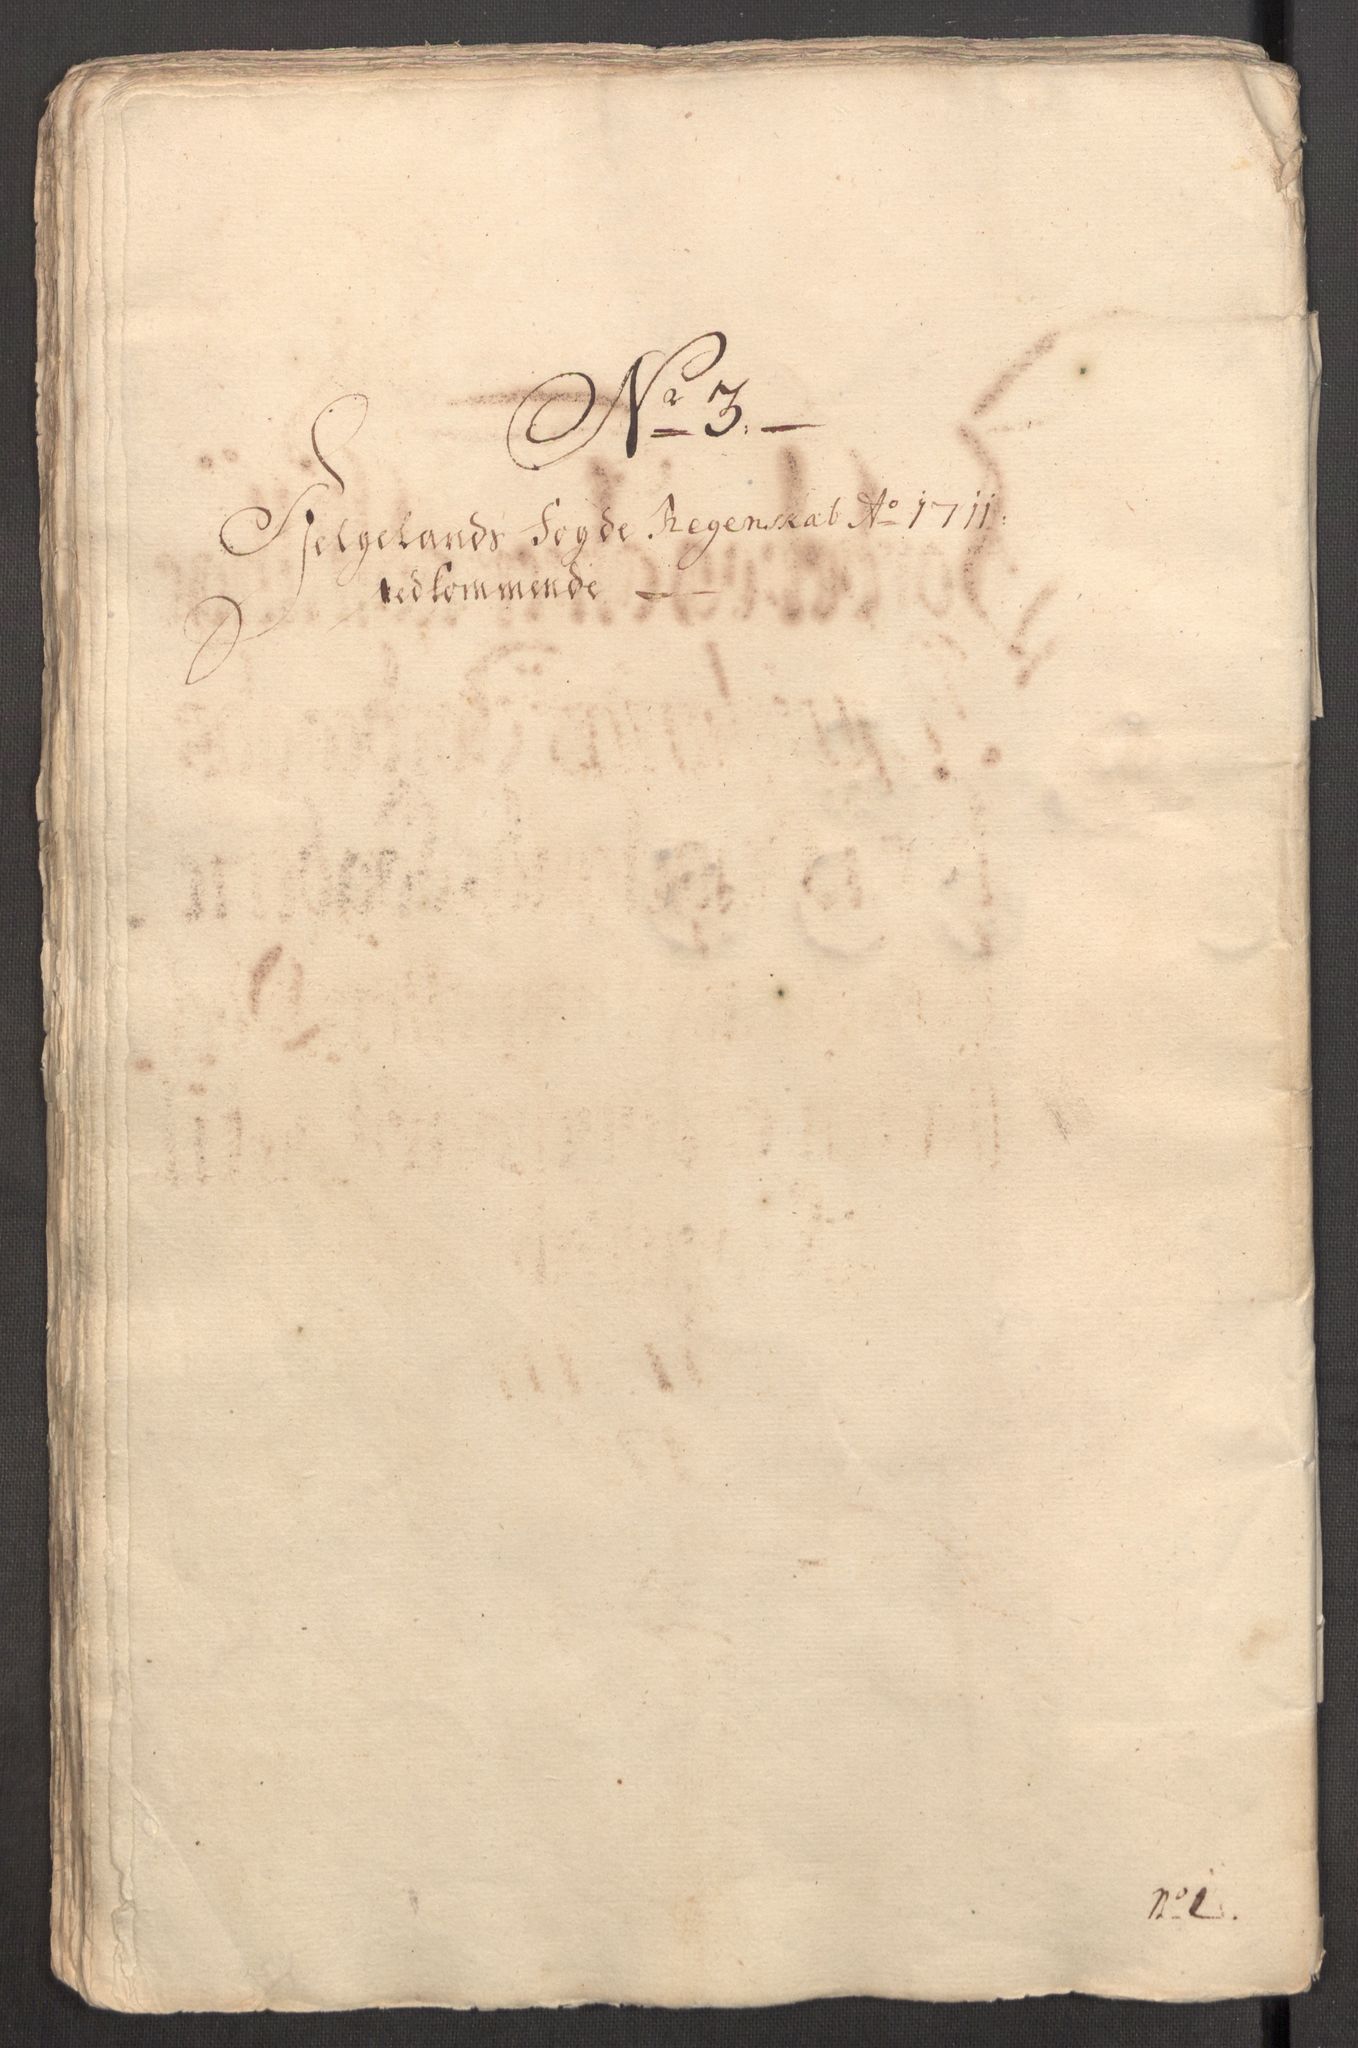 Nr 3.
Helgelands Fogde Regenskab Ao 1711.
vedkommende
No 1.